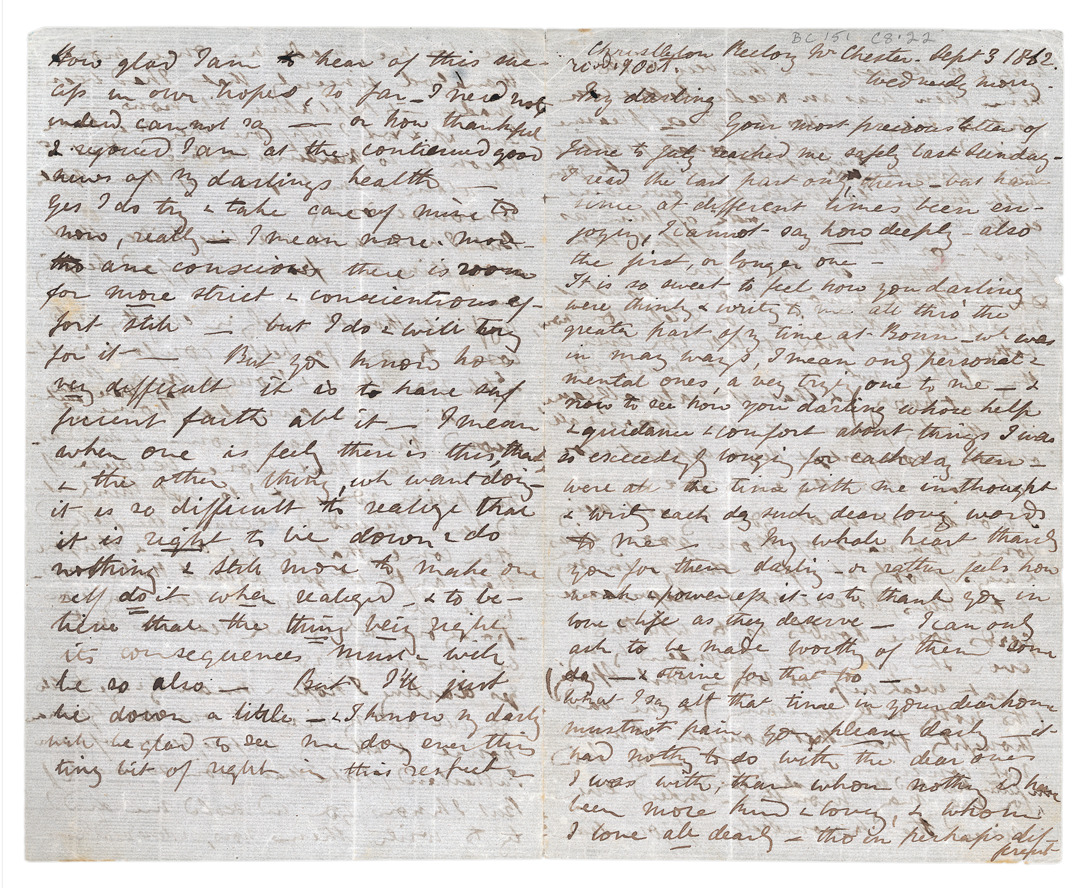 BC 151 C8.22
Christleton Rectory Nr Chester. Sept 3 1862.
Wednesdy morng.
My darling
— Your most precious letter of
June to July reached me safely last Sunday —
I read the last part only then — but have
since at different times been en-
joying, I cannot say how deeply — also
the first, or longer one —
It is so sweet to feel how you darling
were thinkg & writg to me all thro' the
greater part of my time at Bonn — wh was
in many ways, I mean only personal &
mental ones, a very tryg one to me — &
now to see how you darling whose help
& guidance & comfort about things I was
so exceedingly longing for each day then —
were all the time with me in thought
& writg each day such dear loving words
to me — My whole heart thanks
you for them darlg — or rather feels how
powerless it is to thank you in
love & life as they deserve — I can only
ask to be made worthy of them some
day — & strive for that too —
What I say abt that time in your dear home
must not pain you please darlg — it
had nothing to do with the dear ones
I was with, than whom nothing cd have
been more kind & loving, & whom
I love all dearly — tho' in perhaps dif-
ferent
How glad I am to hear of this suc-
cess in our hopes, so far — I need not
indeed cannot say — or how thankful
& rejoiced I am at the continued good
news of my darlings health —
Yes I do try & take care of mine too
now, really — I mean more. Mor-
tho' am conscious there is room
for more strict & conscientious ef-
fort still — but I do & will try
for it — But you know how
very difficult it is to have suf-
ficient faith abt it — I mean
when one is feelg there is this, that
& the other thing, wh want doing —
it is so difficult to realize that
it is right to lie down & do
nothing & still more to make one
self do it when realized, & to be-
lieve that the thing being right,
its consequences must & will
be so also — But I'll just
lie down a little — & I know my darlg
will be glad to see me dog even this
tiny bit of right in this respect —